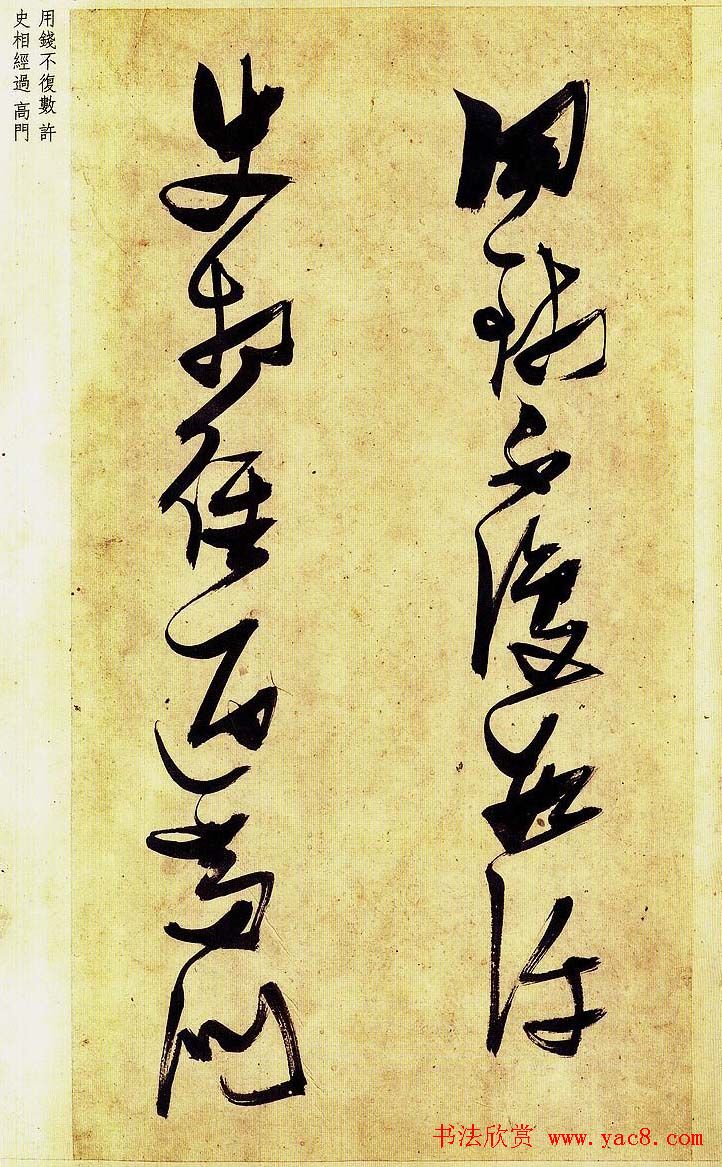 用錢不復數許
史相經過高門
用錢不復數 許
史相經過 高門
书法欣赏 www.yac8.com